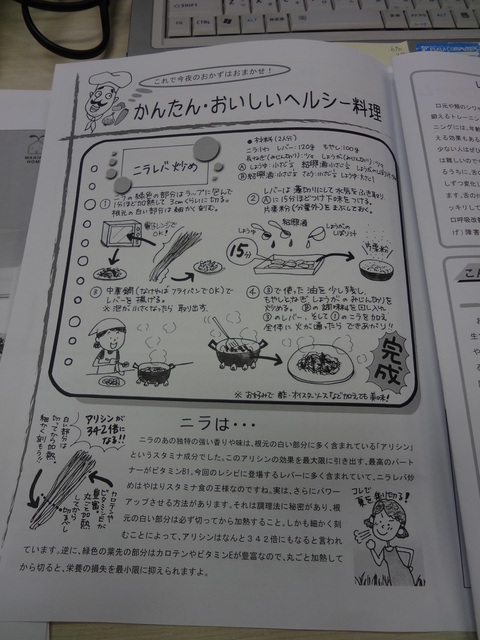 これで今夜のおかずはおまかせ！
かんたん・おいしいヘルシー料理
ニラレバ炒め
●材料(2人分)
ニラ1/4 レバー120g もやし100g
① ニラの緑色の部分はラップに包んで
1分ほど加熱して3cmくらいに切る。
根元の白い部分は細かく刻む。
② レバーは薄切りにして水気をふき取り、
Ⓐに15分ほどつけ下味をつける。
片栗粉(分量外)をまぶしておく。
電子レンジで
OK!
しょうゆ
紹興酒
しょうがの
しぼり汁
15分
片栗粉
③ 中華鍋(なければフライパンでOK)で
レバーを揚げる。
※泡が小さくなったら取り出す。
④ ③で使った油を少し残し、
もやしとねぎ、しょうがのみじん切りを
炒める。Ⓑの調味料を回し入れ
③のレバー、そして①のニラを加え
全体に火が通ったらできあがり!!
完成
※お好みで酢・オイスターソースなど加えても美味!
ニラは・・・
アリシンが
342倍に
なる!!
白い部分は
切ってから加熱。
細かく刻もう!!
カロテンや
ビタミンEが
豊富。
まるごと加熱
してから
切るべし
ニラのあの独特の強い香りや味は、根元の白い部分に多く含まれている「アリシン」
というスタミナ成分でした。このアリシンの効果を最大限に引き出す、最高のパート
ナーがビタミンB1。今回のレシピに登場するレバーに多く含まれていて、ニラレバ炒
めはやはりスタミナ食の王様なのですね。実は、さらにパワー
アップさせる方法があります。それは調理法に秘密があり、根
元の白い部分は必ず切ってから加熱すること。しかも細かく刻
むことによって、アリシンはなんと３４２倍にもなると言われ
ています。逆に、緑色の葉先の部分はカロテンやビタミンEが豊富なので、丸ごと加熱して
から切ると、栄養の損失を最小限に抑えられますよ。
コレで
夏を乗り切る!